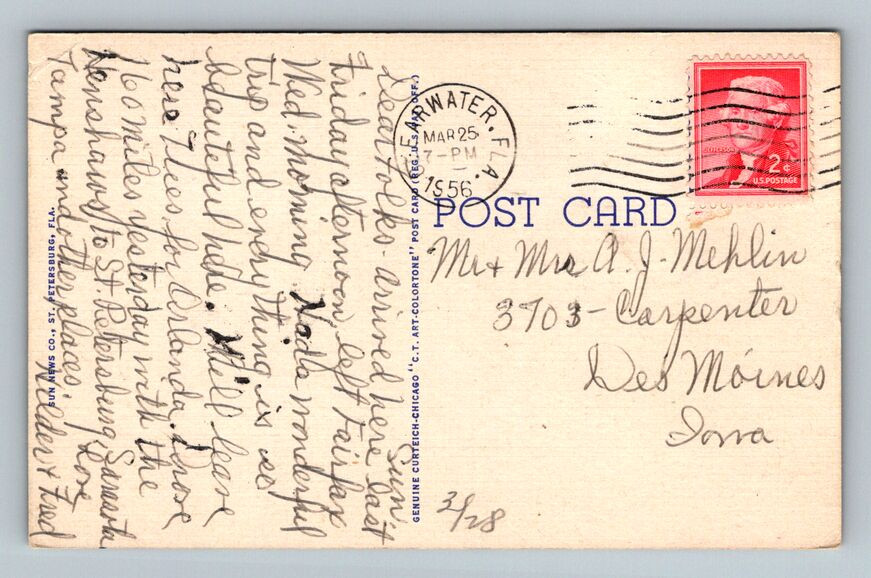 Sun.
Dear folks - arrived here last
Friday afternoon left Fairfax
Wed. morning. Had a wonderful
trip and everything is so
beautiful here. Will leave
here Wed. for Orlando. Drove
160 miles yesterday with the
Henshaws to St Petersburg, Sarasota
Tampa and other places. Love
Wilder & Fred
SUN NEWS CO., ST. PETERSBURG, FLA.
GENUINE CURTEICH-CHICAGO "C.T. ART-COLORTONE" POST CARD (REG. U.S. PAT. OFF.)
CLEARWATER, FLA.
MAR 25
7-PM
1956
JEFFERSON
2¢
U.S. POSTAGE
POST CARD
Mr & Mrs A. J. Mehlin
3703 - Carpenter
Des Moines
Iowa